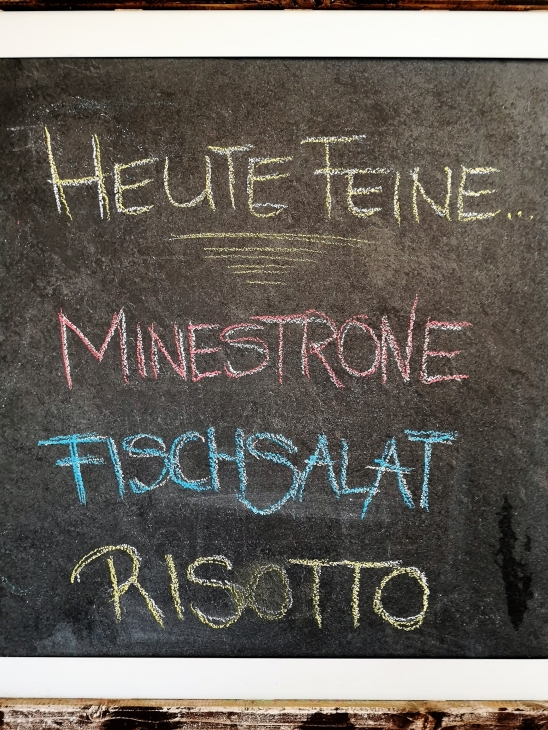 HEUTE FEINE...
MINESTRONE
FISCHSALAT
RISOTTO